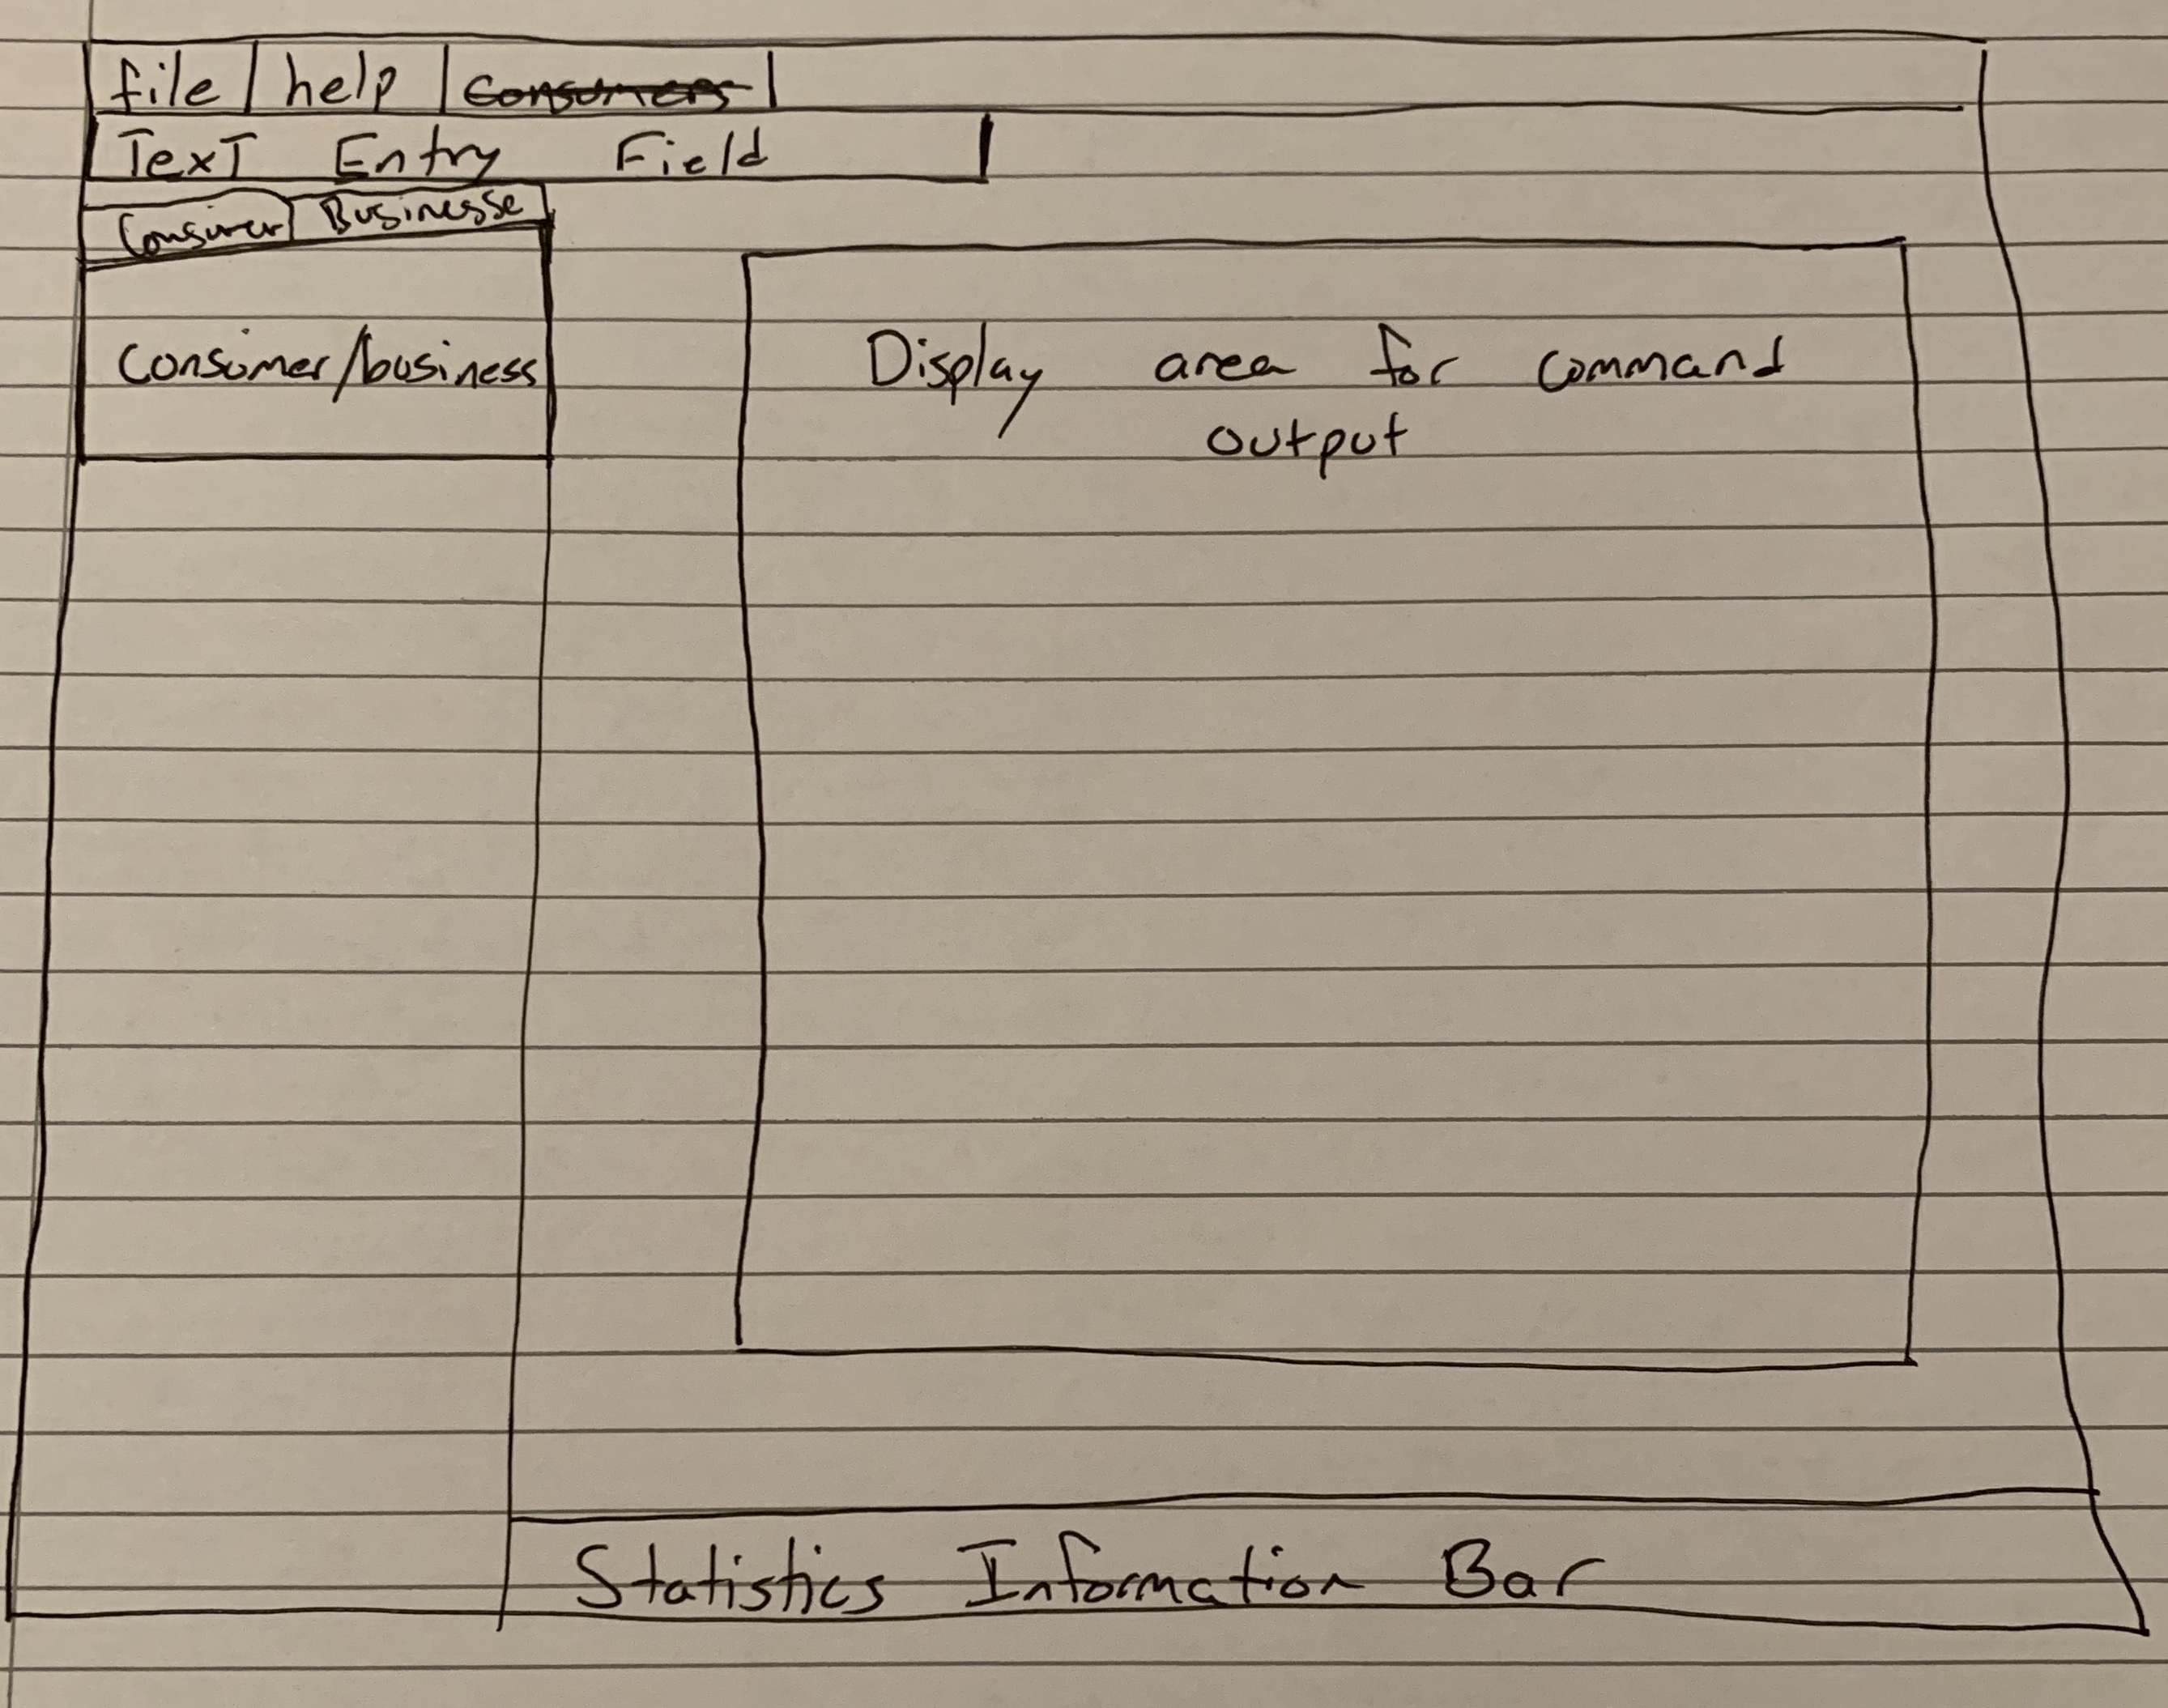 file help Consumers
Text Entry Field
Consumer Businesse
Consumer/business
Display area for command
output
Statistics Information Bar